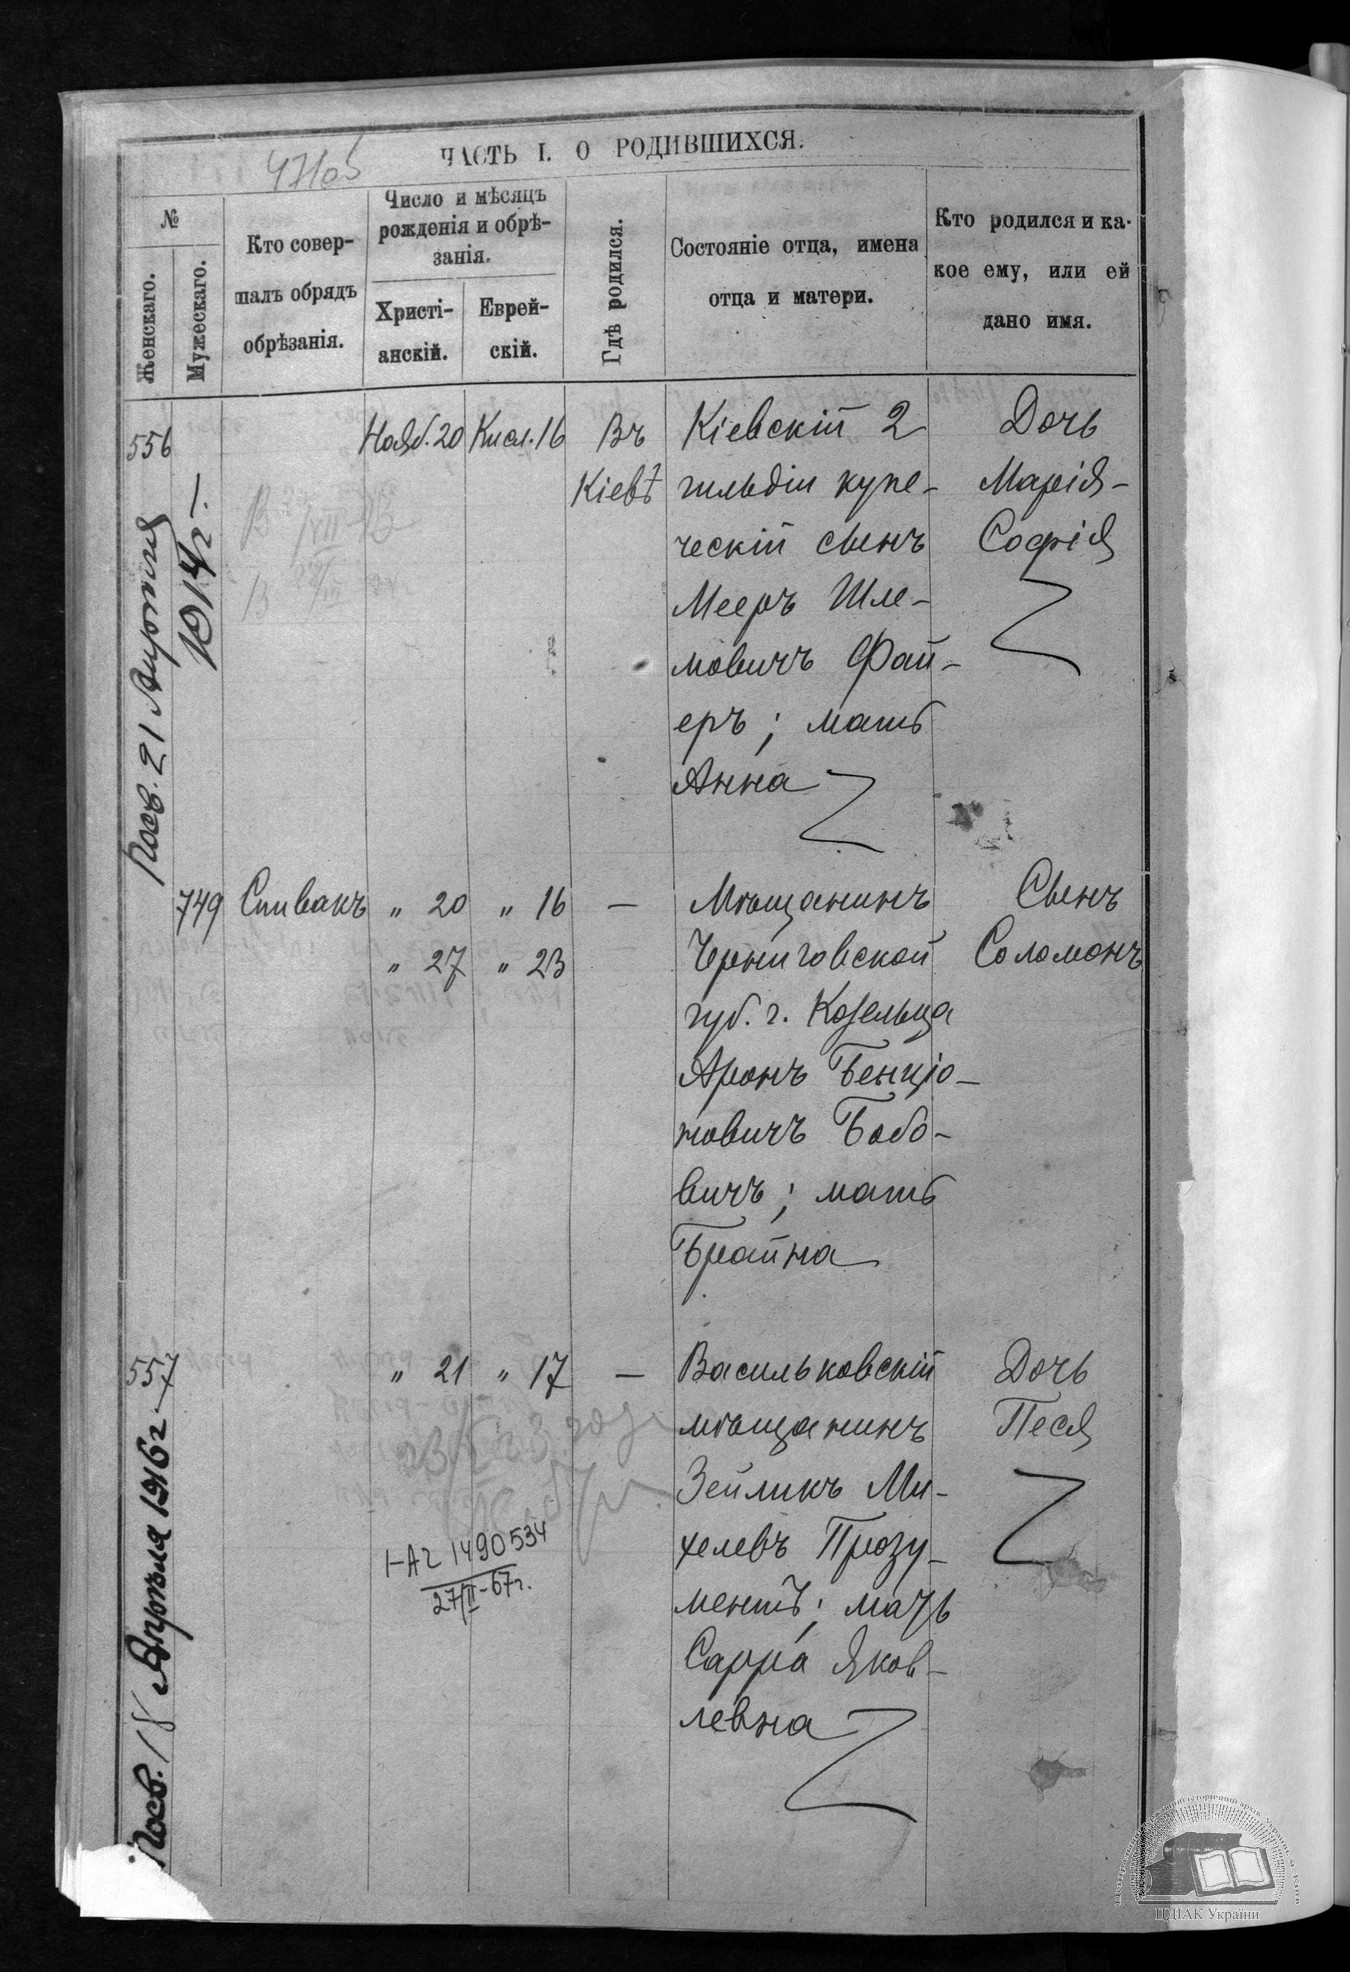 47105
ЧАСТЬ I. О РОДИВШИХСЯ.
№
Женскаго.
Мужескаго.
Кто совер-
шалъ обрядъ
обрѣзанія.
Число и мѣсяцъ
рожденія и обрѣ-
занія.
Христі-
анскій.
Еврей-
скій.
Гдѣ родился.
Состояніе отца, имена
отца и матери.
Кто родился и ка-
кое ему, или ей
дано имя.
556
Нояб. 20
Кисл. 16
Въ
Кіевѣ
Кіевскій 2
гильдіи купе-
ческій сынъ
Мееръ Шле-
мовичъ Фай-
еръ; мать
Анна
Дочь
Марія-
Софія
749
Спивакъ
" 20
" 27
" 16
" 23
—
Мѣщанинъ
Черниговской
губ. г. Козельца
Аронъ Бенціо-
новичъ Бабо-
вичъ; мать
Брайна
Сынъ
Соломонъ
557
" 21
" 17
—
Васильковскій
мѣщанинъ
Зейликъ Ми-
хелевъ Прозу-
ментъ; мать
Сарра Яков-
левна
Дочь
Песя
I-АГ 1490534
27/II-67г.
Посв. 18 Апрѣля 1916 г.
ЦДІАК України